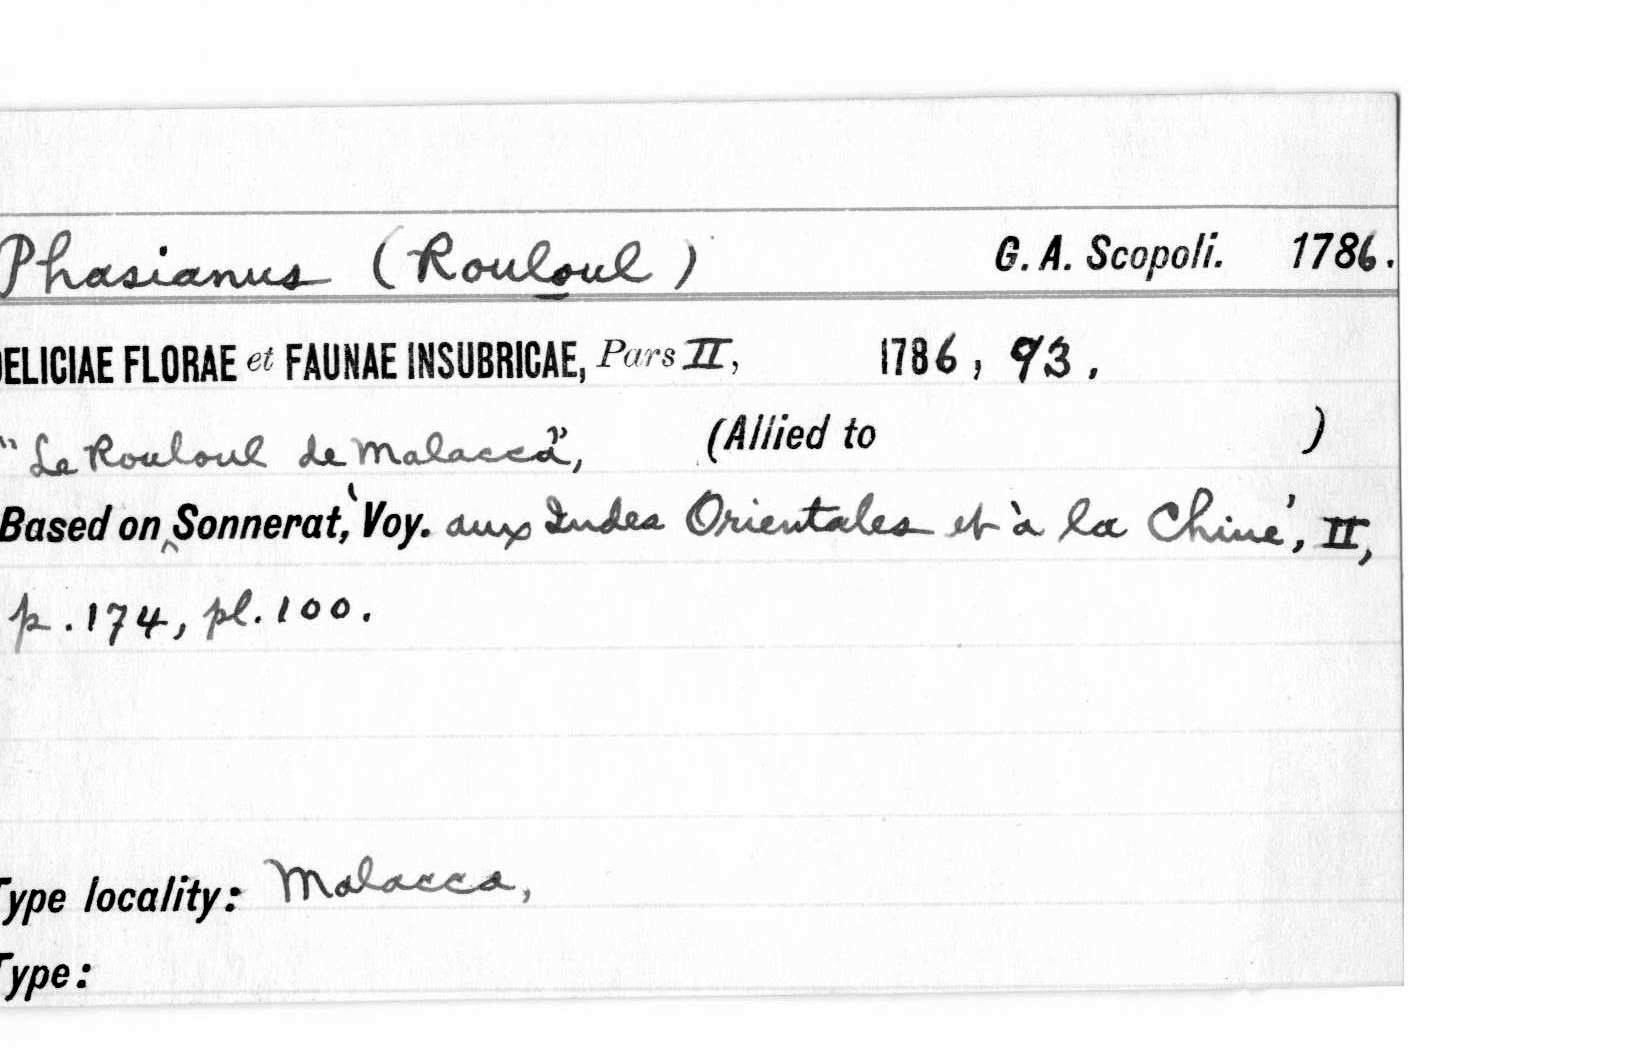 Phasianus (Rouloul) G. A. Scopoli. 1786.
ELICIAE FLORAE et FAUNAE INSUBRICAE, Pars II, 1786, 93.
"Le Rouloul de Malacca", (Allied to )
Based on ‸ Sonnerat, 'Voy. aux Indes Orientales et à la Chine', II,
p. 174, pl. 100.
Type locality: Malacca,
Type: